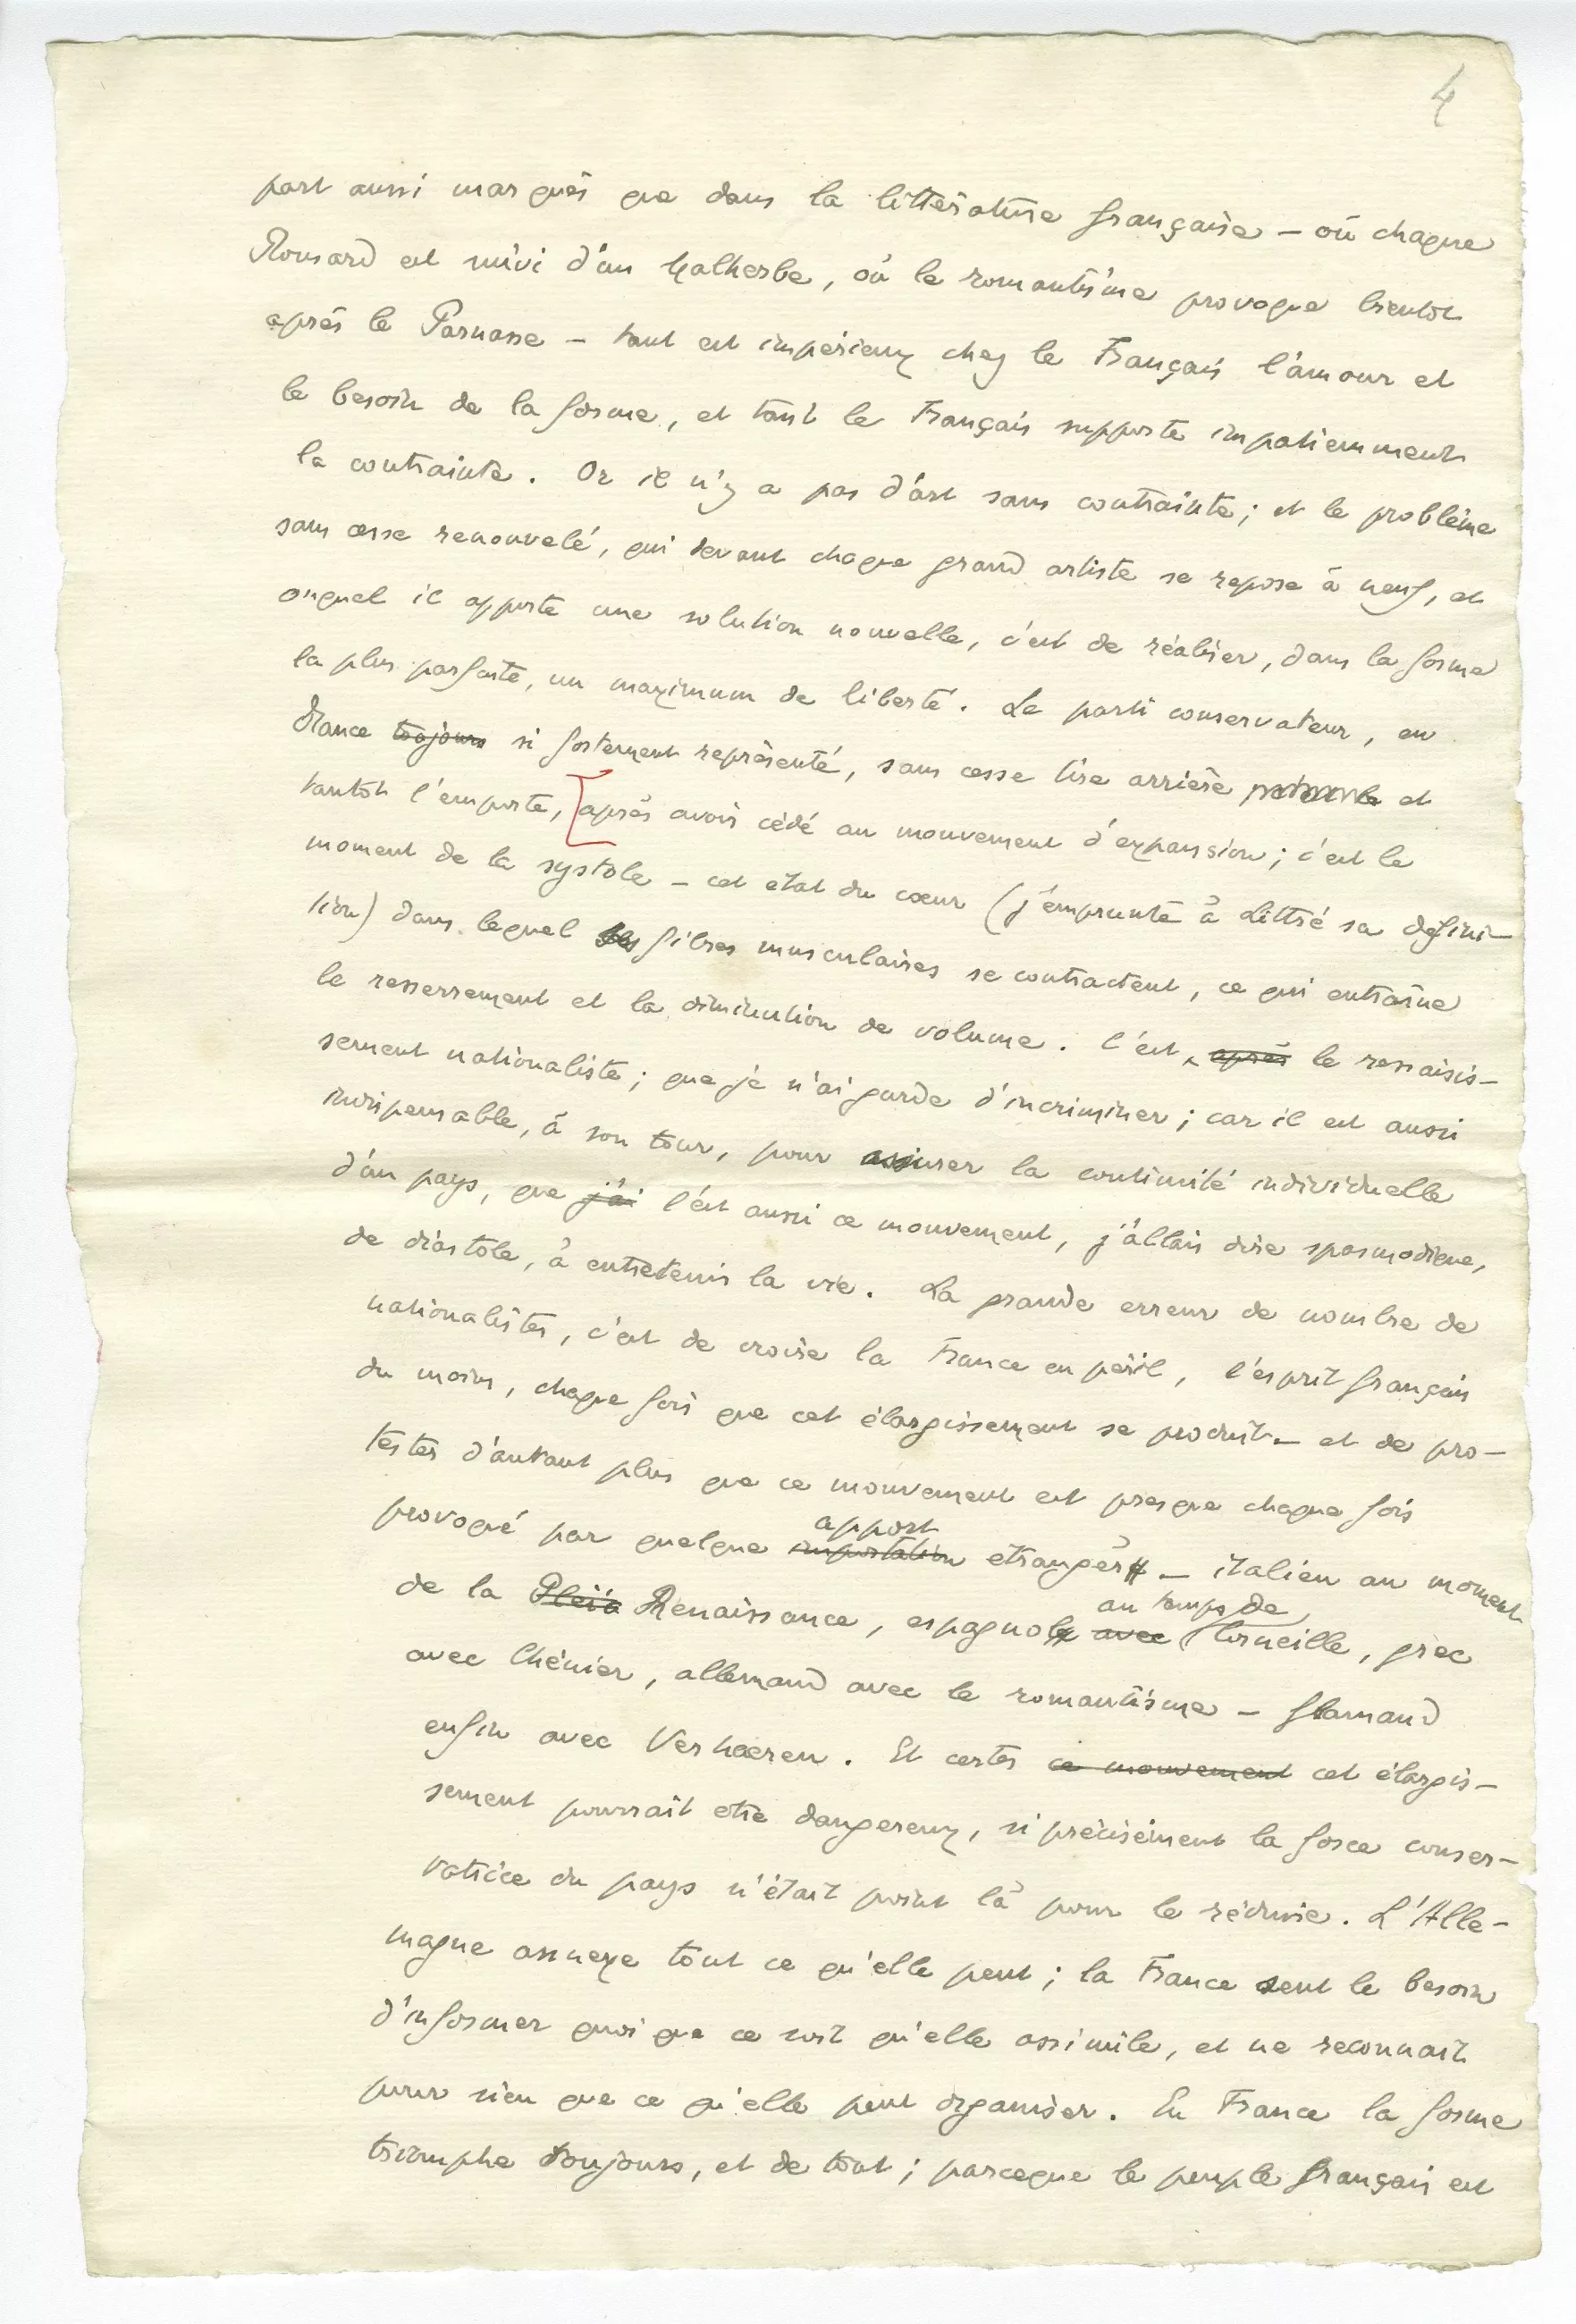 4
part aussi marqués que dans la littérature française – où chaque
Ronsard est suivi d'un Malherbe, où le romantisme provoque bientôt
après le Parnasse – tant est impérieux chez le Français l'amour et
le besoin de la forme, et tant le Français supporte impatiemment
la contrainte. Or il n'y a pas d'art sans contrainte; et le problème
sans cesse renouvelé, qui devant chaque grand artiste se repose à neuf, et
auquel il apporte une solution nouvelle, c'est de réaliser, dans la forme
la plus parfaite, un maximum de liberté. Le parti conservateur, en
France toujours si fortement représenté, sans cesse tire arrière et
tantôt l'emporte, [après avoir cédé au mouvement d'expansion; c'est le
moment de la systole – cet état du cœur (j'emprunte à Littré sa défini–
tion) dans lequel les fibres musculaires se contractent, ce qui entraîne
le resserrement et la diminution de volume. C'est après le ressaisis–
sement nationaliste; que je n'ai garde d'incriminer; car il est aussi
indispensable, à son tour, pour assurer la continuité individuelle
d'un pays, que j'ai l'est aussi ce mouvement, j'allais dire spasmodique,
de diastole, à entretenir la vie. La grande erreur de nombre de
nationalistes, c'est de croire la France en péril, l'esprit français
du moins, chaque fois que cet élargissement se produit – et de pro–
tester d'autant plus que ce mouvement est presque chaque fois
apport
provoqué par quelque importation étranger – italien au moment
au temps de
de la Pléia Renaissance, espagnol avec Corneille, grec
avec Chénier, allemand avec le romantisme – flamand
enfin avec Verhaeren. Et certes ce mouvement cet élargis–
sement pourrait etre dangereux, si précisément la force conser–
vatrice du pays n'était point là pour le réduire. L'Alle–
magne annexe tout ce qu'elle peut; la France sent le besoin
d'informer quoi que ce soit qu'elle assimile, et ne reconnait
pour sien que ce qu'elle peut organiser. En France la forme
triomphe toujours, et de tout; parceque le peuple français est